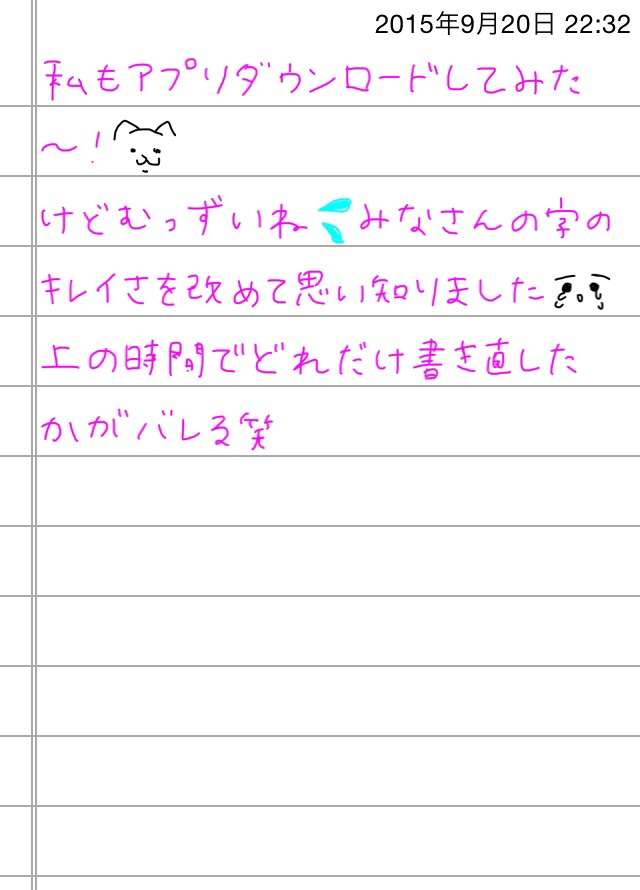 2015年9月20日 22:32
私もアプリダウンロードしてみた
〜！
けどむっずいねみなさんの字の
キレイさを改めて思い知りました
上の時間でどれだけ書き直した
かがバレる笑